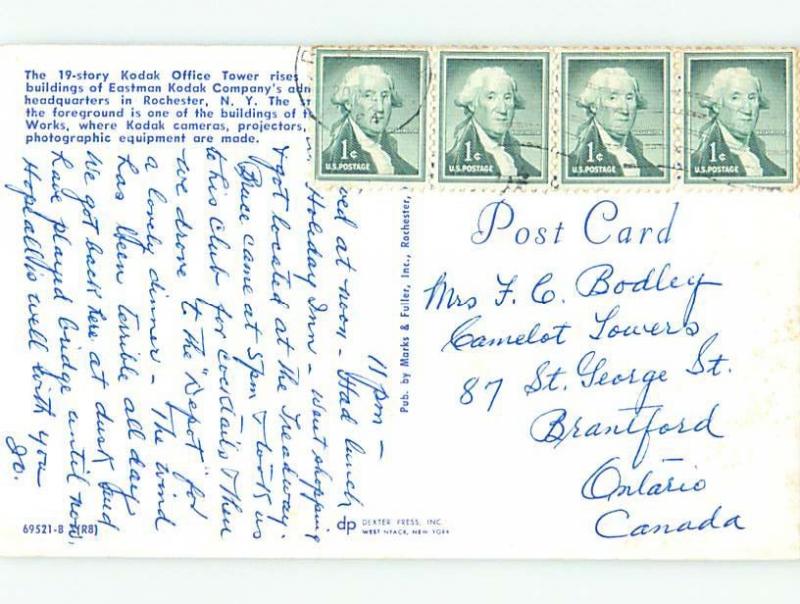 The 19-story Kodak Office Tower rises
buildings of Eastman Kodak Company's adm
headquarters in Rochester, N. Y. The
the foreground is one of the buildings of t
Works, where Kodak cameras, projectors,
photographic equipment are made.
1¢
U.S. POSTAGE
1¢
U.S. POSTAGE
1¢
U.S. POSTAGE
1¢
U.S. POSTAGE
11 pm –
ved at noon – Had lunch
Holiday Inn – Went shopping
& got located at the Treadway.
Bruce came at 5pm & took us
to his club for cocktails & then
we drove to the "Depot" for
a lovely dinner – The wind
has been terrible all day
We got back here at dusk and
have played bridge until now.
Hope all is well with you
Jo.
Pub. by Marks & Fuller, Inc., Rochester,
Post Card
Mrs F. C. Bodley
Camelot Towers
87 St. George St.
Brantford
Ontario
Canada
69521-B (R8)
dp DEXTER PRESS, INC.
WEST NYACK, NEW YORK